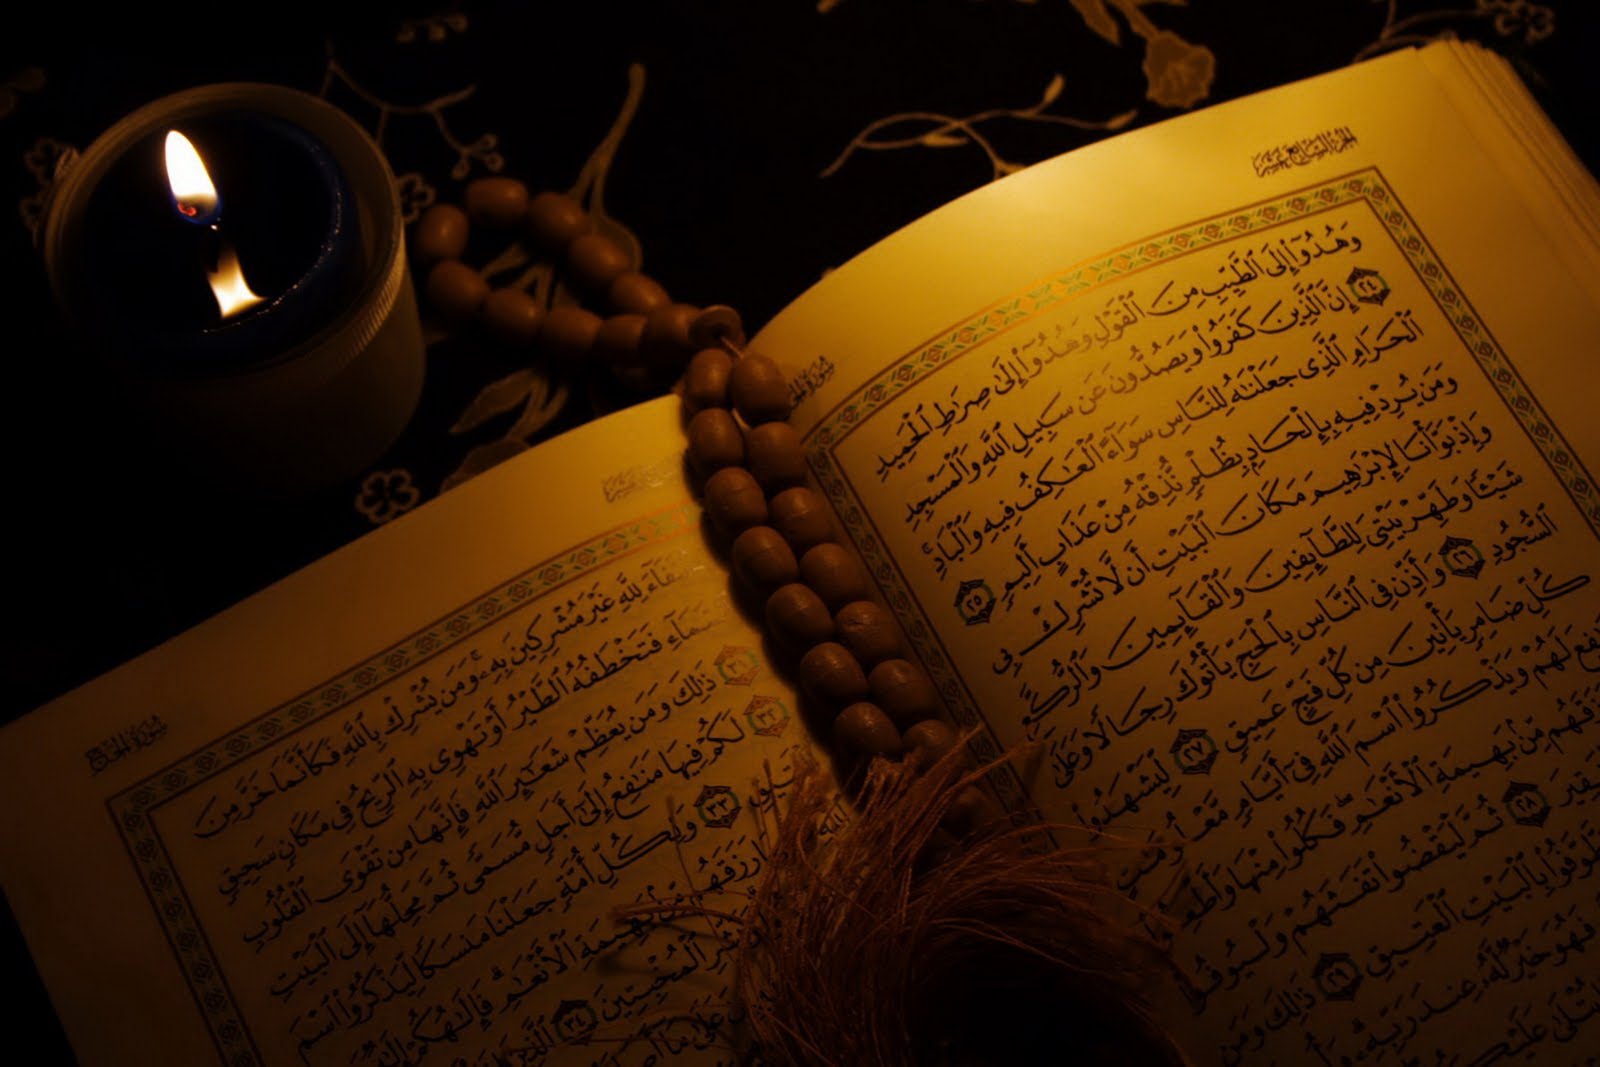 الجزء السابع عشر
وَهُدُوٓاْ إِلَى ٱلطَّيِّبِ مِنَ ٱلْقَوْلِ وَهُدُوٓاْ إِلَىٰ صِرَٰطِ ٱلْحَمِيدِ
٢٤ إِنَّ ٱلَّذِينَ كَفَرُواْ وَيَصُدُّونَ عَن سَبِيلِ ٱللَّهِ وَٱلْمَسْجِدِ
ٱلْحَرَامِ ٱلَّذِى جَعَلْنَٰهُ لِلنَّاسِ سَوَآءً ٱلْعَٰكِفُ فِيهِ وَٱلْبَادِ ۚ
وَمَن يُرِدْ فِيهِ بِإِلْحَادٍۭ بِظُلْمٍ نُّذِقْهُ مِنْ عَذَابٍ أَلِيمٍ ٢٥
وَإِذْ بَوَّأْنَا لِإِبْرَٰهِيمَ مَكَانَ ٱلْبَيْتِ أَن لَّا تُشْرِكْ بِى
شَيْـًٔا وَطَهِّرْ بَيْتِىَ لِلطَّآئِفِينَ وَٱلْقَآئِمِينَ وَٱلرُّكَّعِ
ٱلسُّجُودِ ٢٦ وَأَذِّن فِى ٱلنَّاسِ بِٱلْحَجِّ يَأْتُوكَ رِجَالًا وَعَلَىٰ
كُلِّ ضَامِرٍ يَأْتِينَ مِن كُلِّ فَجٍّ عَمِيقٍ ٢٧ لِّيَشْهَدُواْ
لَهُمْ وَيَذْكُرُواْ ٱسْمَ ٱللَّهِ فِىٓ أَيَّامٍ مَّعْلُومَٰتٍ
مِّنۢ بَهِيمَةِ ٱلْأَنْعَٰمِ ۖ فَكُلُواْ مِنْهَا
٢٨ ثُمَّ لْيَقْضُواْ تَفَثَهُمْ وَلْيُوفُواْ
بِٱلْبَيْتِ ٱلْعَتِيقِ ٢٩ ذَٰلِكَ وَمَن
فَهُوَ خَيْرٌ لَّهُۥ عِندَ رَبِّهِۦ ۗ
يُتْلَىٰ عَلَيْكُمْ
سورة الحج
لِلَّهِ غَيْرَ مُشْرِكِينَ بِهِۦ ۚ وَمَن يُشْرِكْ بِٱللَّهِ فَكَأَنَّمَا خَرَّ مِنَ
ٱلسَّمَآءِ فَتَخْطَفُهُ ٱلطَّيْرُ أَوْ تَهْوِى بِهِ ٱلرِّيحُ فِى مَكَانٍ سَحِيقٍ
٣١ ذَٰلِكَ وَمَن يُعَظِّمْ شَعَٰٓئِرَ ٱللَّهِ فَإِنَّهَا مِن تَقْوَى ٱلْقُلُوبِ
٣٢ لَكُمْ فِيهَا مَنَٰفِعُ إِلَىٰٓ أَجَلٍ مُّسَمًّى ثُمَّ مَحِلُّهَآ إِلَى ٱلْبَيْتِ
٣٣ وَلِكُلِّ أُمَّةٍ جَعَلْنَا مَنسَكًا لِّيَذْكُرُواْ ٱسْمَ
ٱللَّهِ رَزَقَهُم بَهِيمَةِ ٱلْأَنْعَٰمِ ۗ فَإِلَٰهُكُمْ إِلَٰهٌ
ٱلْمُخْبِتِينَ ٣٤ ٱلَّذِينَ
عَلَىٰ مَآ